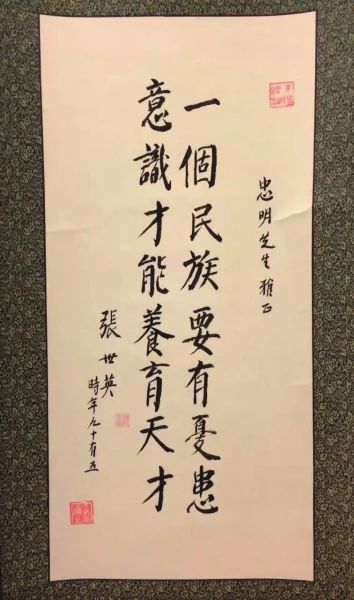 忠明先生雅正
一個民族要有憂患
意識才能養育天才
張世英
時年九十有五